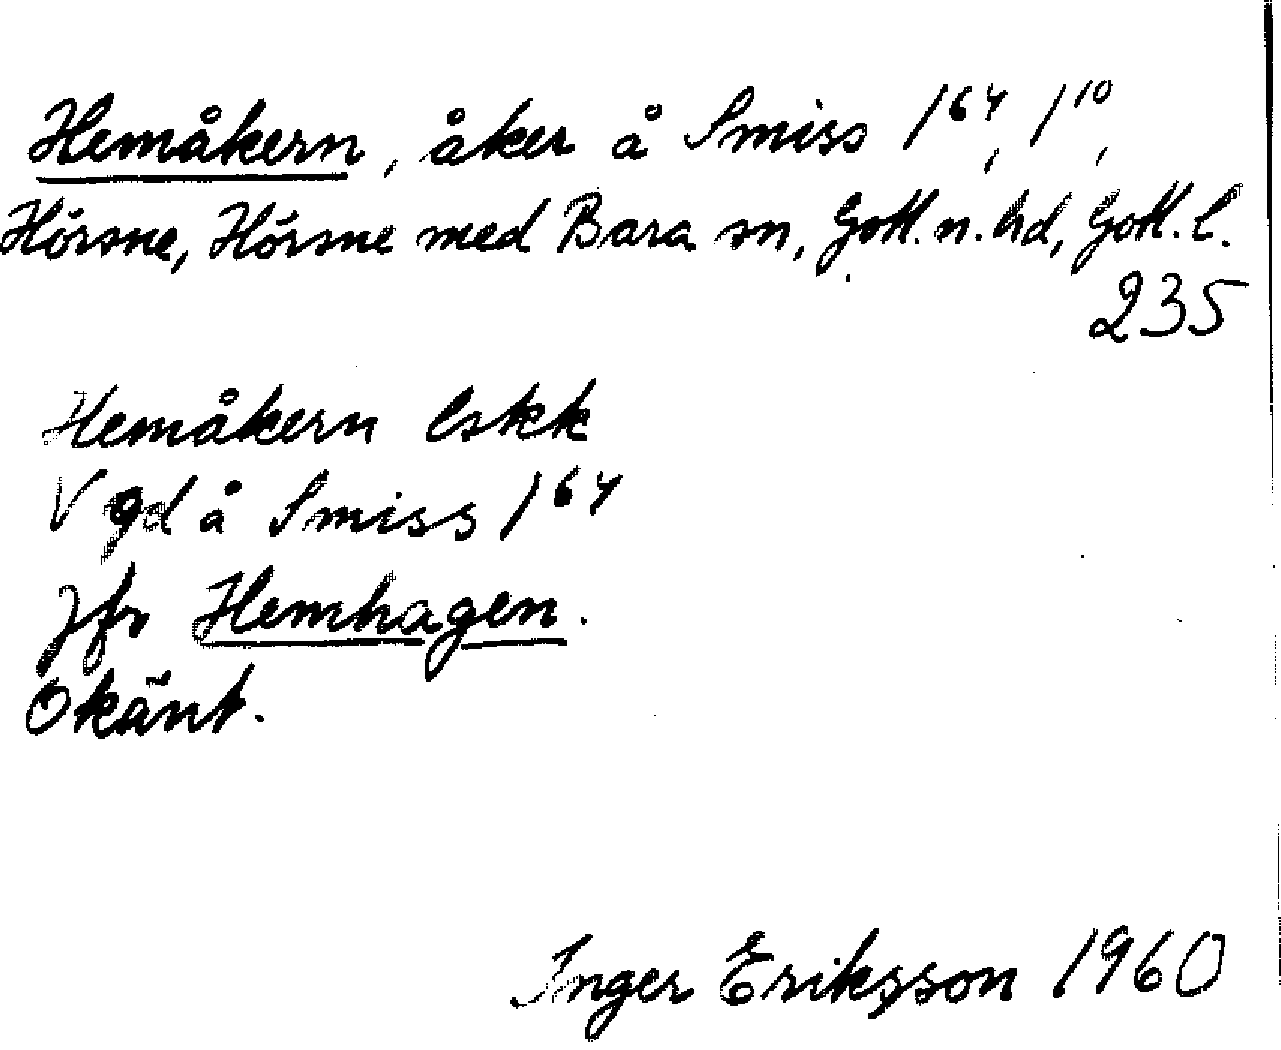 Hemåkern, åker å Smiss 1⁶⁴, 1¹⁰,
Hörsne, Hörsne med Bara sn, Gotl. n. hd, Gotl. l.
235
Hemåkern lskk
V gd å Smiss 1⁶⁴
Jfr Hemhagen.
Okänt.
Inger Eriksson 1960